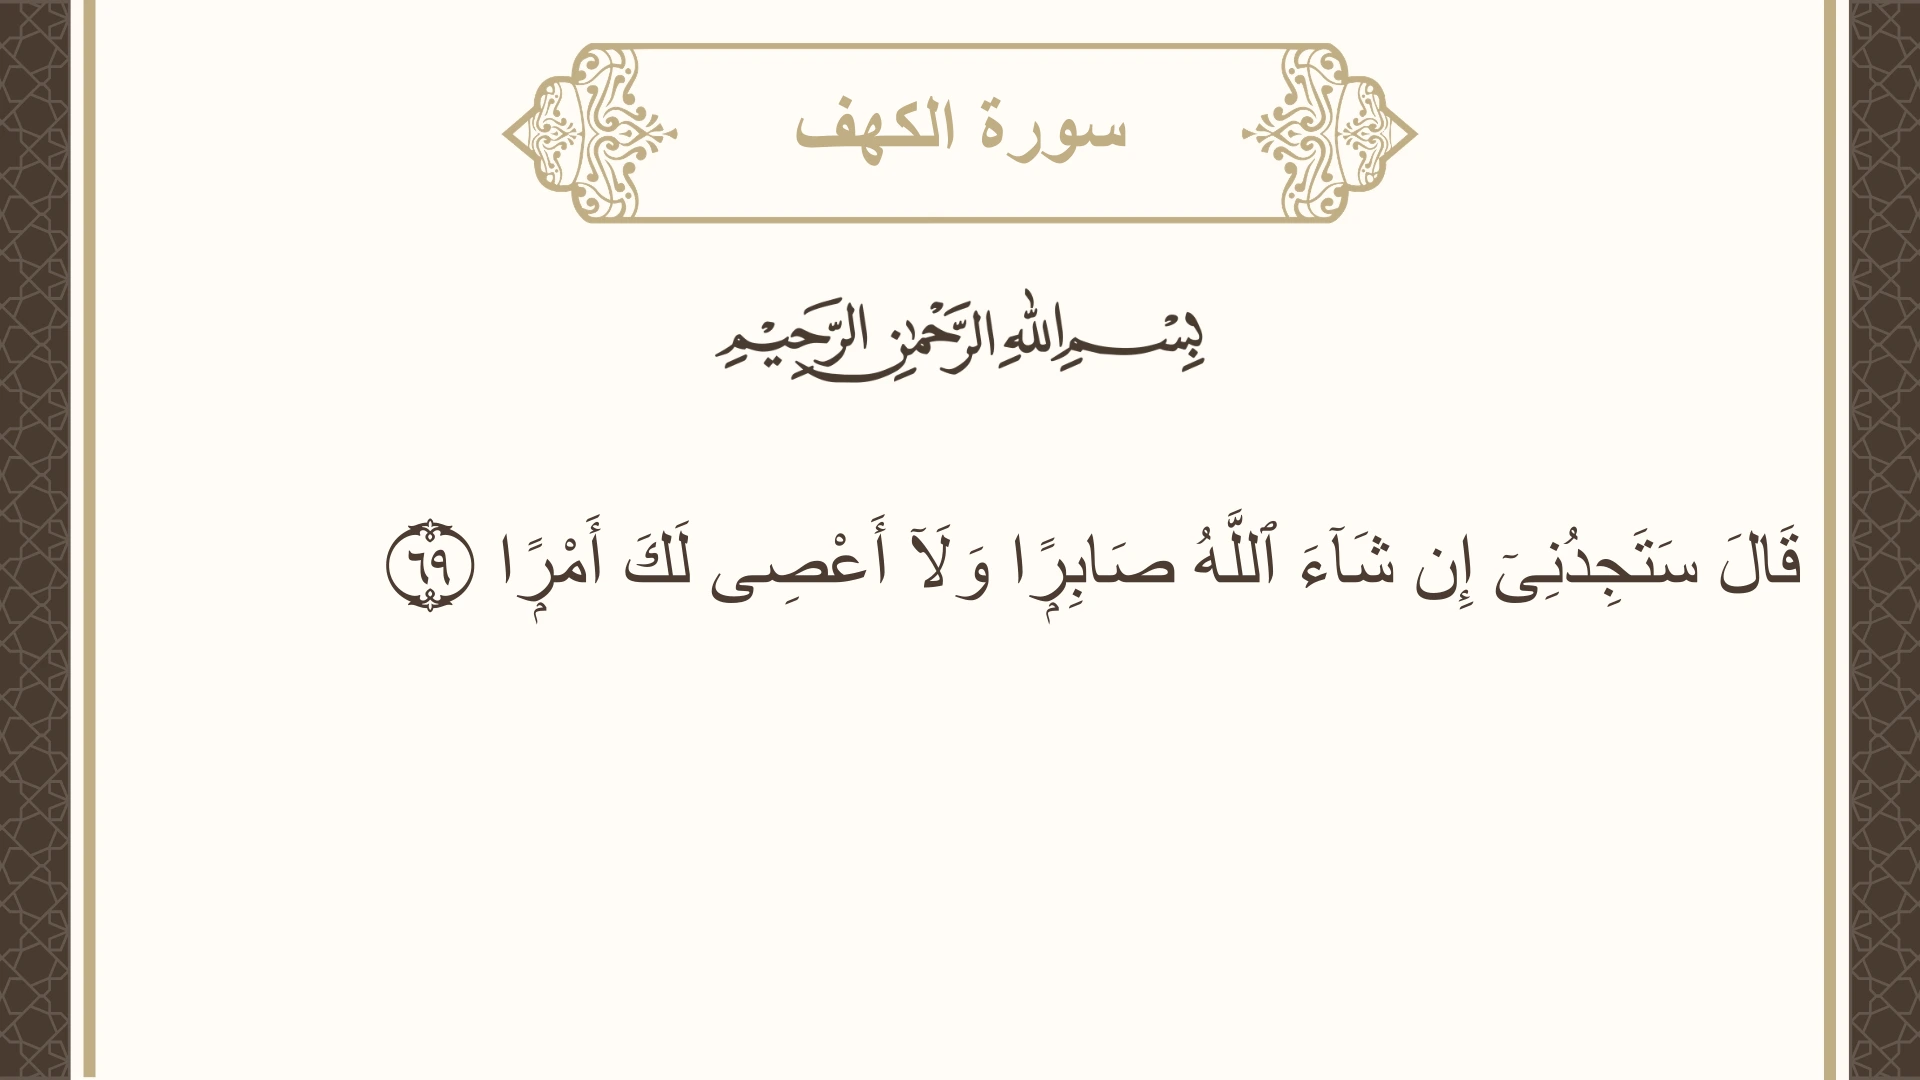 سورة الكهف
بِسْمِ اللهِ الرَّحْمٰنِ الرَّحِيْمِ
قَالَ سَتَجِدُنِىٓ إِن شَآءَ ٱللَّهُ صَابِرًۭا وَلَآ أَعْصِى لَكَ أَمْرًۭا ٦٩